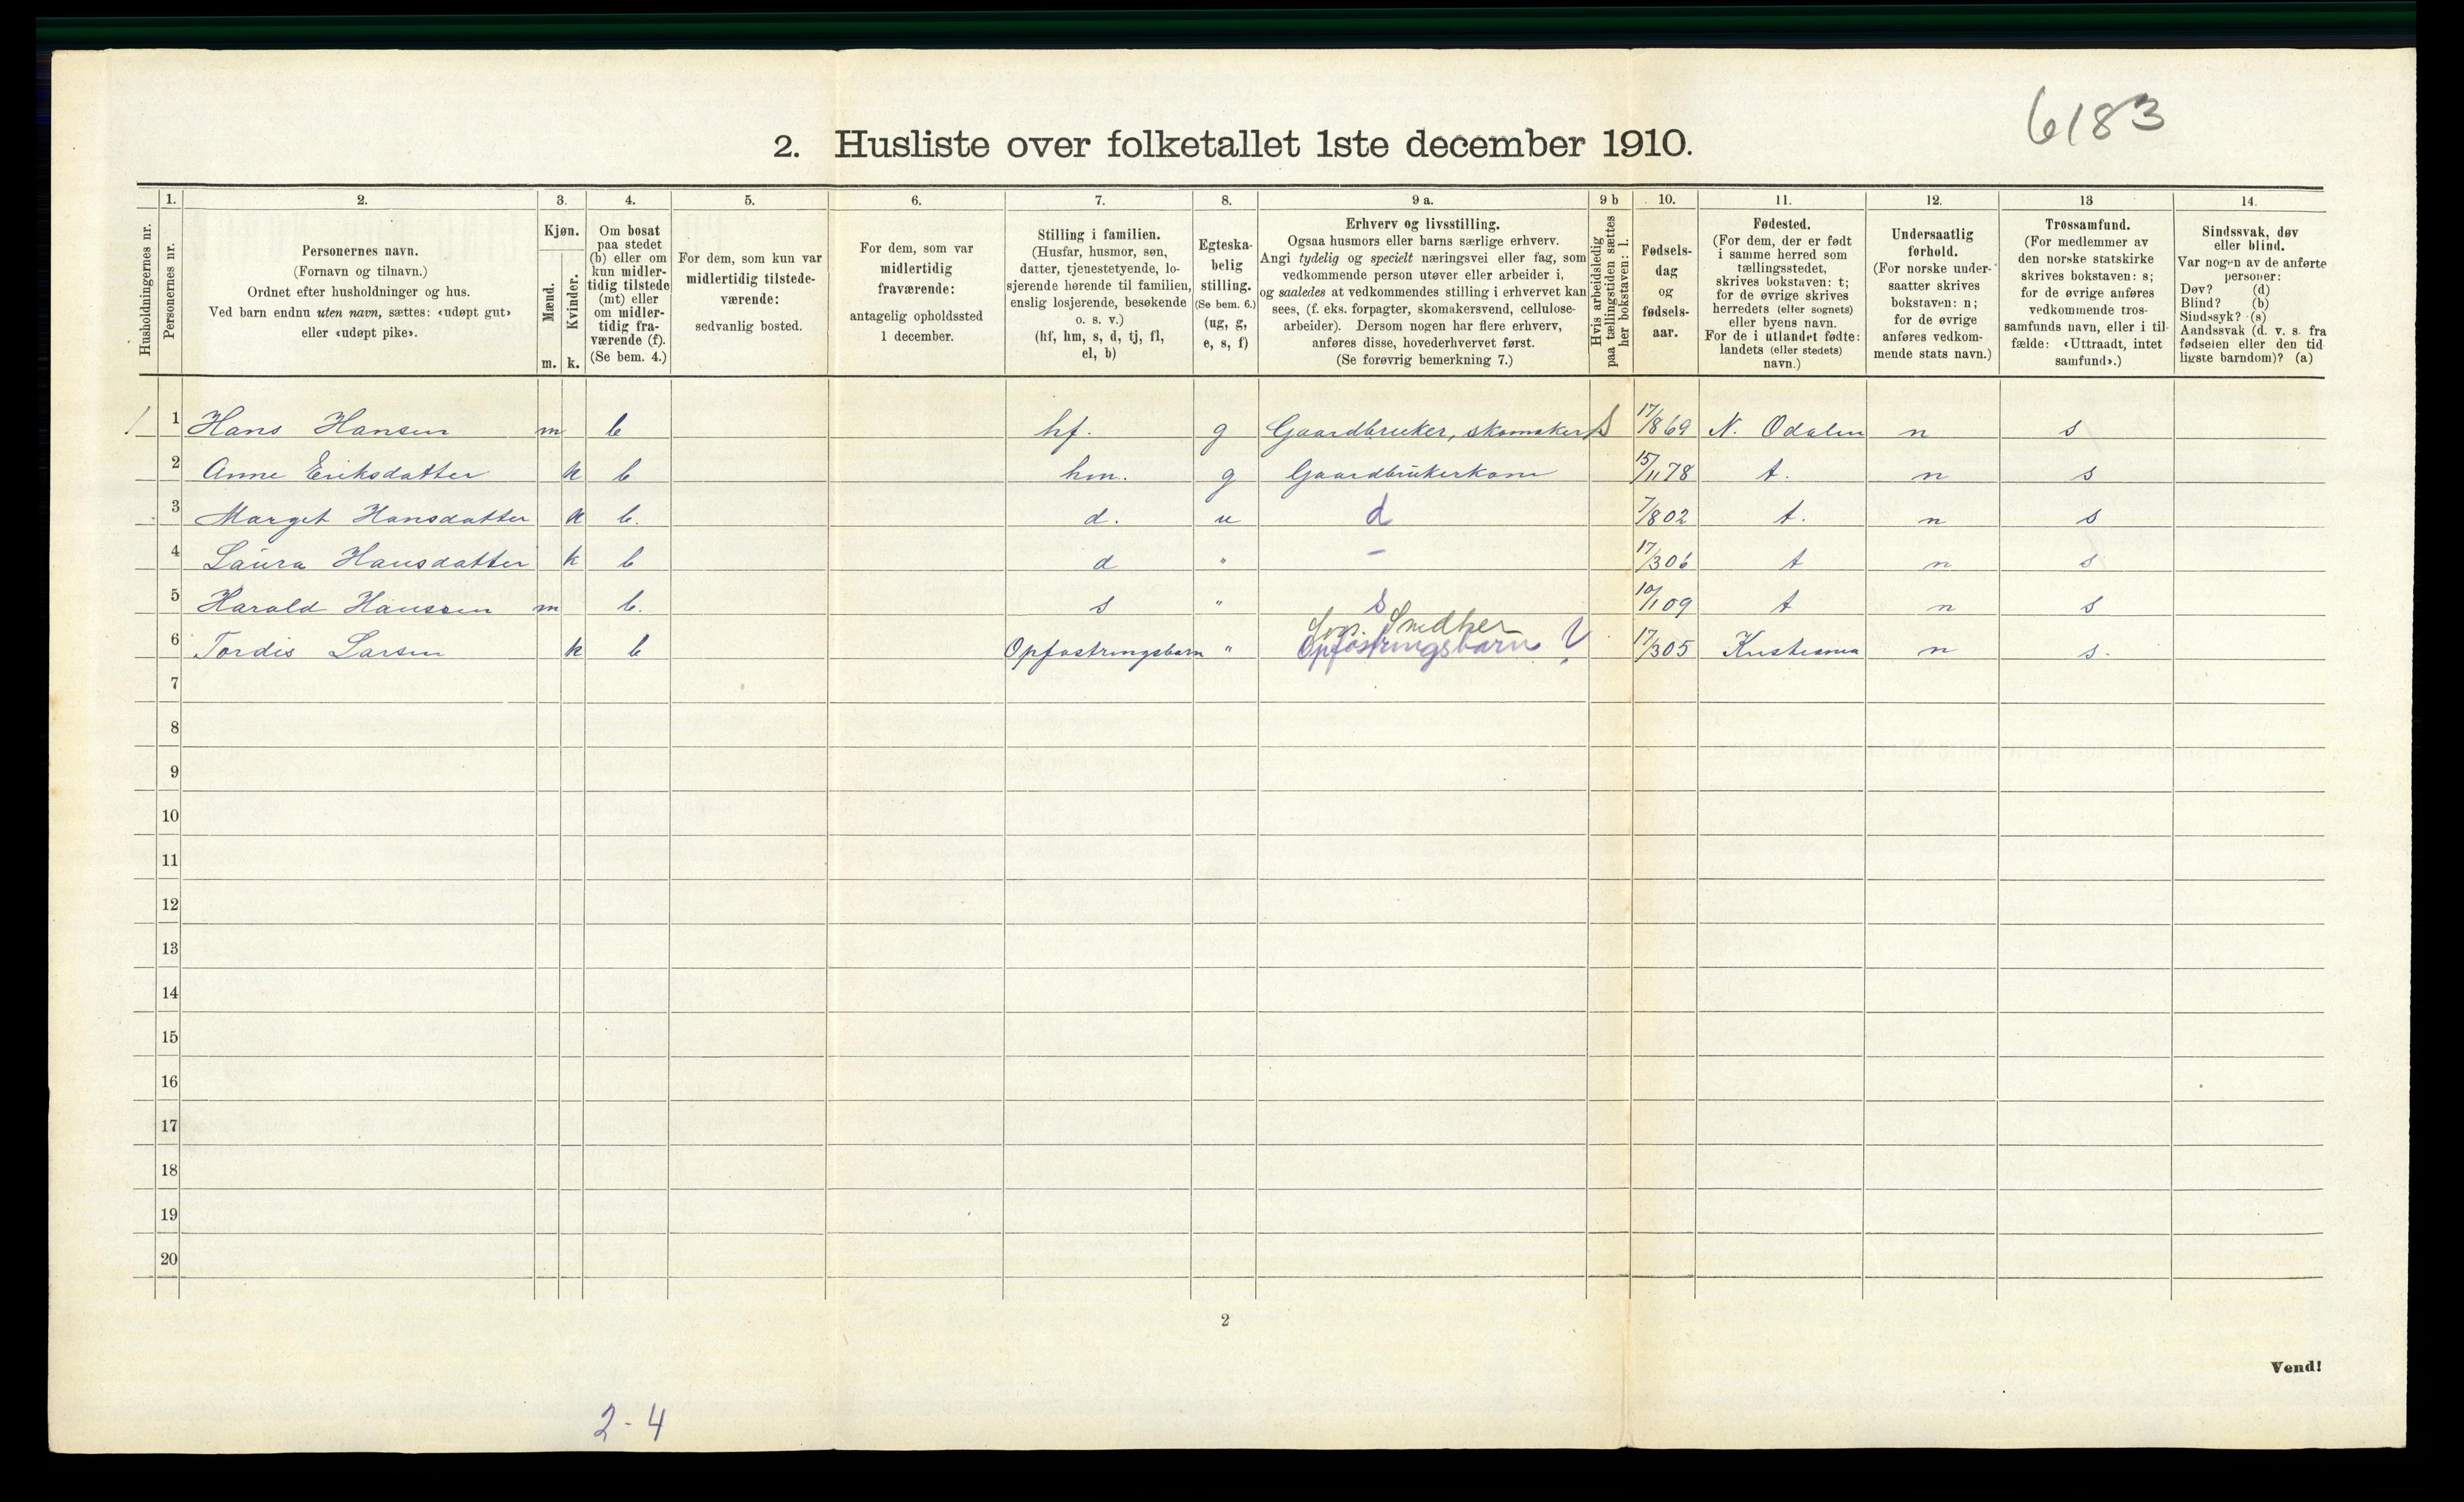 6183
2. Husliste over folketallet 1ste december 1910.
Husholdningernes nr.
1. Personernes nr.
2. Personernes navn.
(Fornavn og tilnavn.)
Ordnet efter husholdninger og hus.
Ved barn endnu uten navn, sættes: «udøpt gut»
eller «udøpt pike».
3. Kjøn.
Mænd. m.
Kvinder. k.
4. Om bosat
paa stedet
(b) eller om
kun midler-
tidig tilstede
(mt) eller
om midler-
tidig fra-
værende (f).
(Se bem. 4.)
5. For dem, som kun var
midlertidig tilstede-
værende:
sedvanlig bosted.
6. For dem, som var
midlertidig
fraværende:
antagelig opholdssted
1 december.
7. Stilling i familien.
(Husfar, husmor, søn,
datter, tjenestetyende, lo-
sjerende hørende til familien,
enslig losjerende, besøkende
o. s. v.)
(hf, hm, s, d, tj, fl,
el, b)
8. Egteska-
belig
stilling.
(Se bem. 6.)
(ug, g,
e, s, f)
9 a. Erhverv og livsstilling.
Ogsaa husmors eller barns særlige erhverv.
Angi tydelig og specielt næringsvei eller fag, som
vedkommende person utøver eller arbeider i,
og saaledes at vedkommendes stilling i erhvervet kan
sees, (f. eks. forpagter, skomakersvend, cellulose-
arbeider). Dersom nogen har flere erhverv,
anføres disse, hovederhvervet først.
(Se forøvrig bemerkning 7.)
9 b Hvis arbeidsledig
paa tællingstiden sættes
her bokstaven: l.
10. Fødsels-
dag
og
fødsels-
aar.
11. Fødested.
(For dem, der er født
i samme herred som
tællingsstedet,
skrives bokstaven: t;
for de øvrige skrives
herredets (eller sognets)
eller byens navn.
For de i utlandet fødte:
landets (eller stedets)
navn.)
12. Undersaatlig
forhold.
(For norske under-
saatter skrives
bokstaven: n;
for de øvrige
anføres vedkom-
mende stats navn.)
13 Trossamfund.
(For medlemmer av
den norske statskirke
skrives bokstaven: s;
for de øvrige anføres
vedkommende tros-
samfunds navn, eller i til-
fælde: «Uttraadt, intet
samfund».)
14. Sindssvak, døv
eller blind.
Var nogen av de anførte
personer:
Døv? (d)
Blind? (b)
Sindssyk? (s)
Aandssvak (d. v. s. fra
fødselen eller den tid
ligste barndom)? (a)
1 Hans Hansen m b hf. g Gaardbruker, skomaker S 17/8 69 N. Odalen n s
2 Anne Eriksdatter k b hm. g Gaardbrukerkone 15/11 78 t. n s
3 Marget Hansdatter k b. d. u d 7/8 02 t. n s
4 Laura Hansdatter k b d " – 17/3 06 t n s
5 Harald Hanssen m b. s " s 10/1 09 t n s
Snedker
6 Tordis Larsen k b Opfostringsbarn " Opfostringsbarn 17/3 05 Kristiania n s.
7
8
9
10
11
12
13
14
15
16
17
18
19
20
2
Vend!
2-4